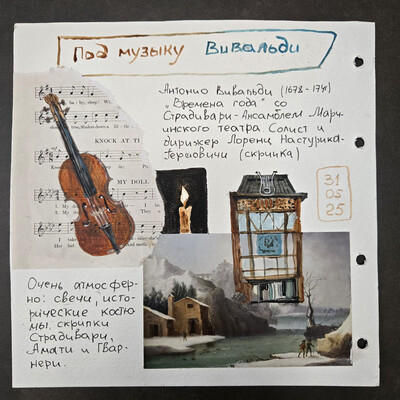 Под музыку Вивальди
Антонио Вивальди (1678-1741)
„Времена года" со
Страдивари-Ансамблем Марч-
инского театра. Солист и
дирижер Лоренц Настурика-
Гершовичи (скрипка)
31
05
25
KNOCK AT TH
MY DOLL
Очень атмосфер-
но: свечи, исто-
рические костю-
мы, скрипки
Страдивари,
Амати и Гвар-
нери.